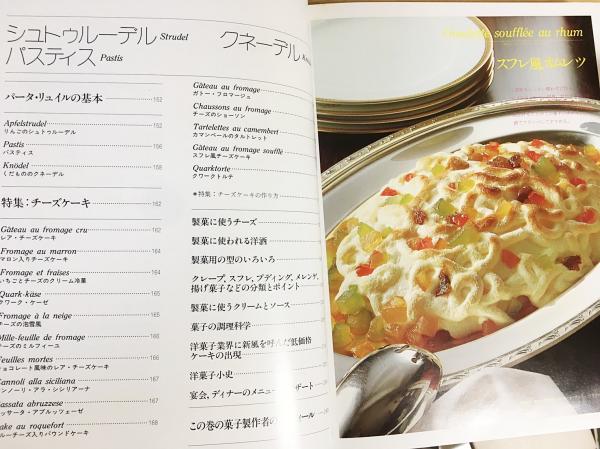 シュトゥルーデル Strudel
パスティス Pastis
パータ・リュイルの基本 152
Apfelstrudel 152
りんごのシュトゥルーデル
Pastis 156
パスティス
Knödel 158
くだもののクネーデル
特集：チーズケーキ 162
Gâteau au fromage cru 162
レア・チーズケーキ
Fromage au marron 164
マロン入りチーズケーキ
Fromage et fraises 164
いちごとチーズのクリーム冷菓
Quark-käse 165
クワーク・ケーゼ
Fromage à la neige 165
チーズの泡雪風
Mille-feuille de fromage 166
チーズのミルフィーユ
Feuilles mortes 166
チョコレート風味のレア・チーズケーキ
Cannoli alla siciliana 167
カンノーリ・アラ・シシリアーナ
Cassata abruzzese 167
カッサータ・アブルッツェーゼ
Cake au roquefort 168
ブルーチーズ入りパウンドケーキ
クネーデル
Gâteau au fromage
ガトー・フロマージュ
Chaussons au fromage
チーズのショーソン
Tartelettes au camembert
カマンベールのタルトレット
Gâteau au fromage soufflé
スフレ風チーズケーキ
Quarktorte
クワークトルテ
＊特集：チーズケーキの作り方
製菓に使うチーズ
製菓に使われる洋酒
製菓用の型のいろいろ
クレープ、スフレ、プディング、メレンゲ、
揚げ菓子などの分類とポイント
製菓に使うクリームとソース
菓子の調理科学
洋菓子業界に新風を呼んだ低価格
ケーキの出現
洋菓子小史
宴会、ディナーのメニュー デザート
この巻の菓子製作者の フィール
soufflée au rhum
スフレ風オムレツ